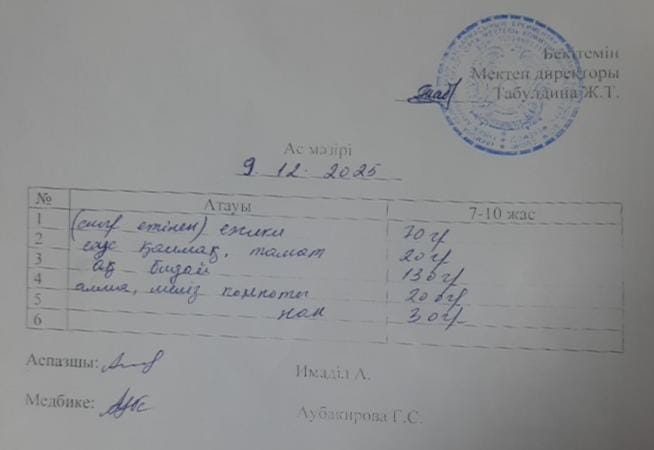 Бекітемін
Мектеп директоры
Табулдина Ж.Т.
Ас мәзірі
9. 12. 2025
№ Атауы 7-10 жас
1 (сиыр етінен) ежики 70 гр
2 соус қаймақ, томат 20 гр
3 ақ бидай 130 гр
4 алма, мейіз компоты 200 гр
5 нан 30 гр
6
Аспазшы: Имаділ А.
Медбике: Аубакирова Г.С.